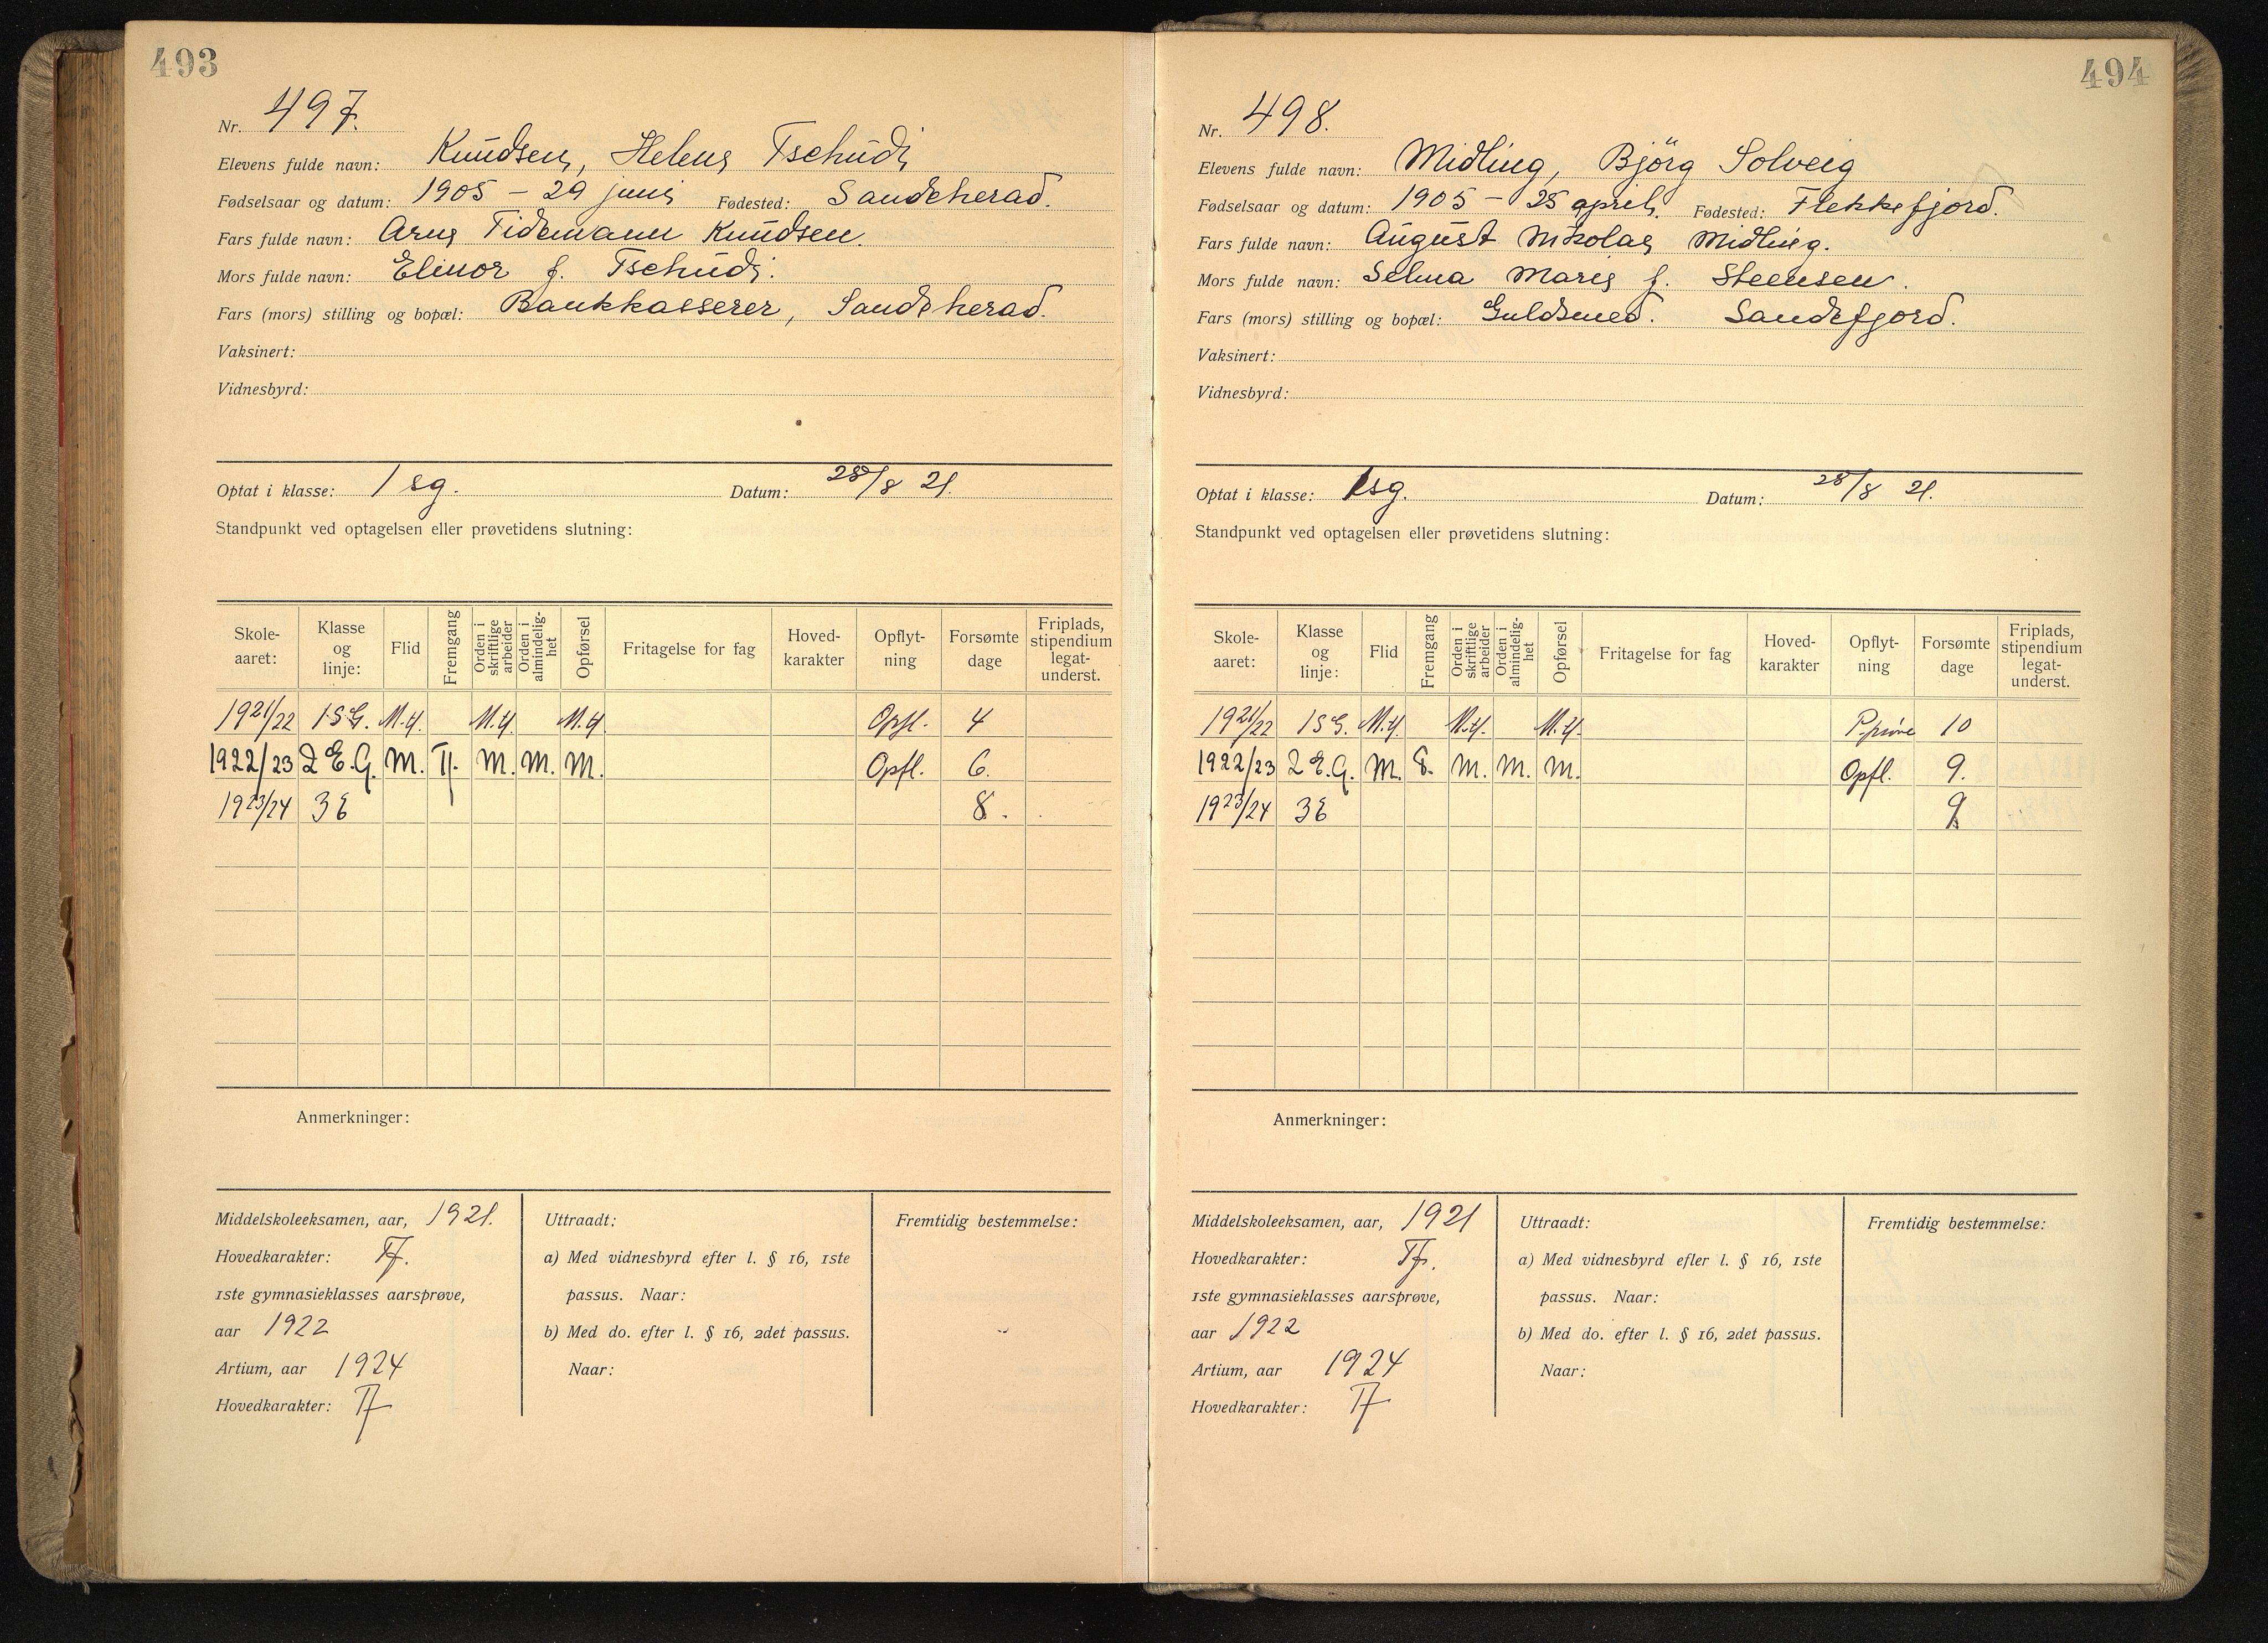 493
Nr. 497.
Elevens fulde navn: Knudsen, Helene Tschudi
Fødselsaar og datum: 1905 - 29 juni Fødested: Sandeherad.
Fars fulde navn: Arne Tidemann Knudsen.
Mors fulde navn: Elinor f. Tschudi.
Fars (mors) stilling og bopæl: Bankkasserer, Sandeherad.
Vaksinert:
Vidnesbyrd:
Optat i klasse: 1 sg. Datum: 28/8 21.
Standpunkt ved optagelsen eller prøvetidens slutning:
Skole-aaret: Klasse og linje: Flid Fremgang Orden i skriftlige arbeider Orden i almindelig-het Opførsel Fritagelse for fag Hoved-karakter Opflyt-ning Forsømte dage Friplads, stipendium legat-underst.
1921/22 1 S G. M.tf. M.tf. M.tf. Opfl. 4
1922/23 2 E.G. M. T. M. M. M. Opfl. 6.
1923/24 3 E 8.
Anmerkninger:
Middelskoleeksamen, aar, 1921.
Hovedkarakter: Tf.
1ste gymnasieklasses aarsprøve,
aar 1922
Artium, aar 1924
Hovedkarakter: Tf
Uttraadt:
a) Med vidnesbyrd efter l. § 16, 1ste
passus. Naar:
b) Med do. efter l. § 16, 2det passus.
Naar:
Fremtidig bestemmelse:
494
Nr. 498.
Elevens fulde navn: Midling, Björg Solveig
Fødselsaar og datum: 1905 - 25 april. Fødested: Flekkefjord.
Fars fulde navn: August Nikolai Midling.
Mors fulde navn: Selma Marie f. Steensen.
Fars (mors) stilling og bopæl: Guldsmed. Sandefjord.
Vaksinert:
Vidnesbyrd:
Optat i klasse: 1 sg. Datum: 28/8 21.
Standpunkt ved optagelsen eller prøvetidens slutning:
Skole-aaret: Klasse og linje: Flid Fremgang Orden i skriftlige arbeider Orden i almindelig-het Opførsel Fritagelse for fag Hoved-karakter Opflyt-ning Forsømte dage Friplads, stipendium legat-underst.
1921/22 1 S G. M.tf. M.tf. M.tf. P.prøve 10
1922/23 2 E.G. M. M. M. M. Opfl. 9.
1923/24 3 E 9
Anmerkninger:
Middelskoleeksamen, aar, 1921
Hovedkarakter: Tf.
1ste gymnasieklasses aarsprøve,
aar 1922
Artium, aar 1924
Hovedkarakter: Tf
Uttraadt:
a) Med vidnesbyrd efler l. § 16, 1ste
passus. Naar:
b) Med do. efter l. § 16, 2det passus.
Naar:
Fremtidig bestemmelse: